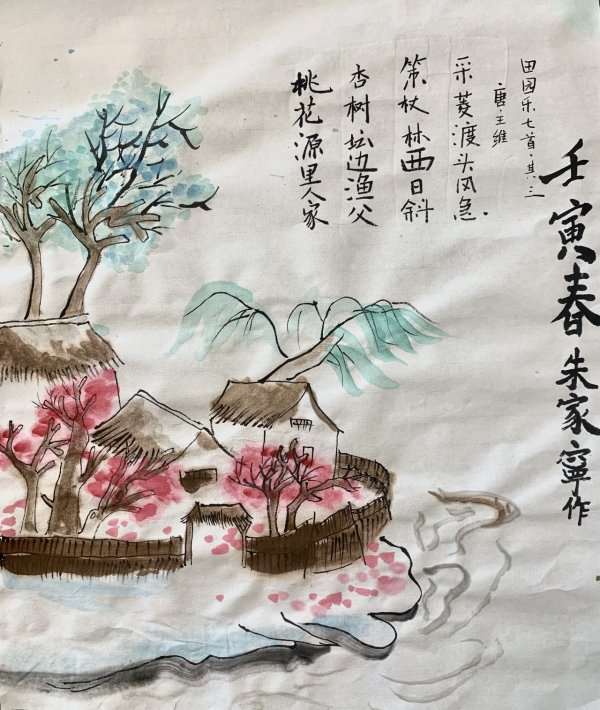 壬寅春 朱家寧作
田园乐七首·其三
唐·王维
采菱渡头风急
策杖林西日斜
杏树坛边渔父
桃花源里人家